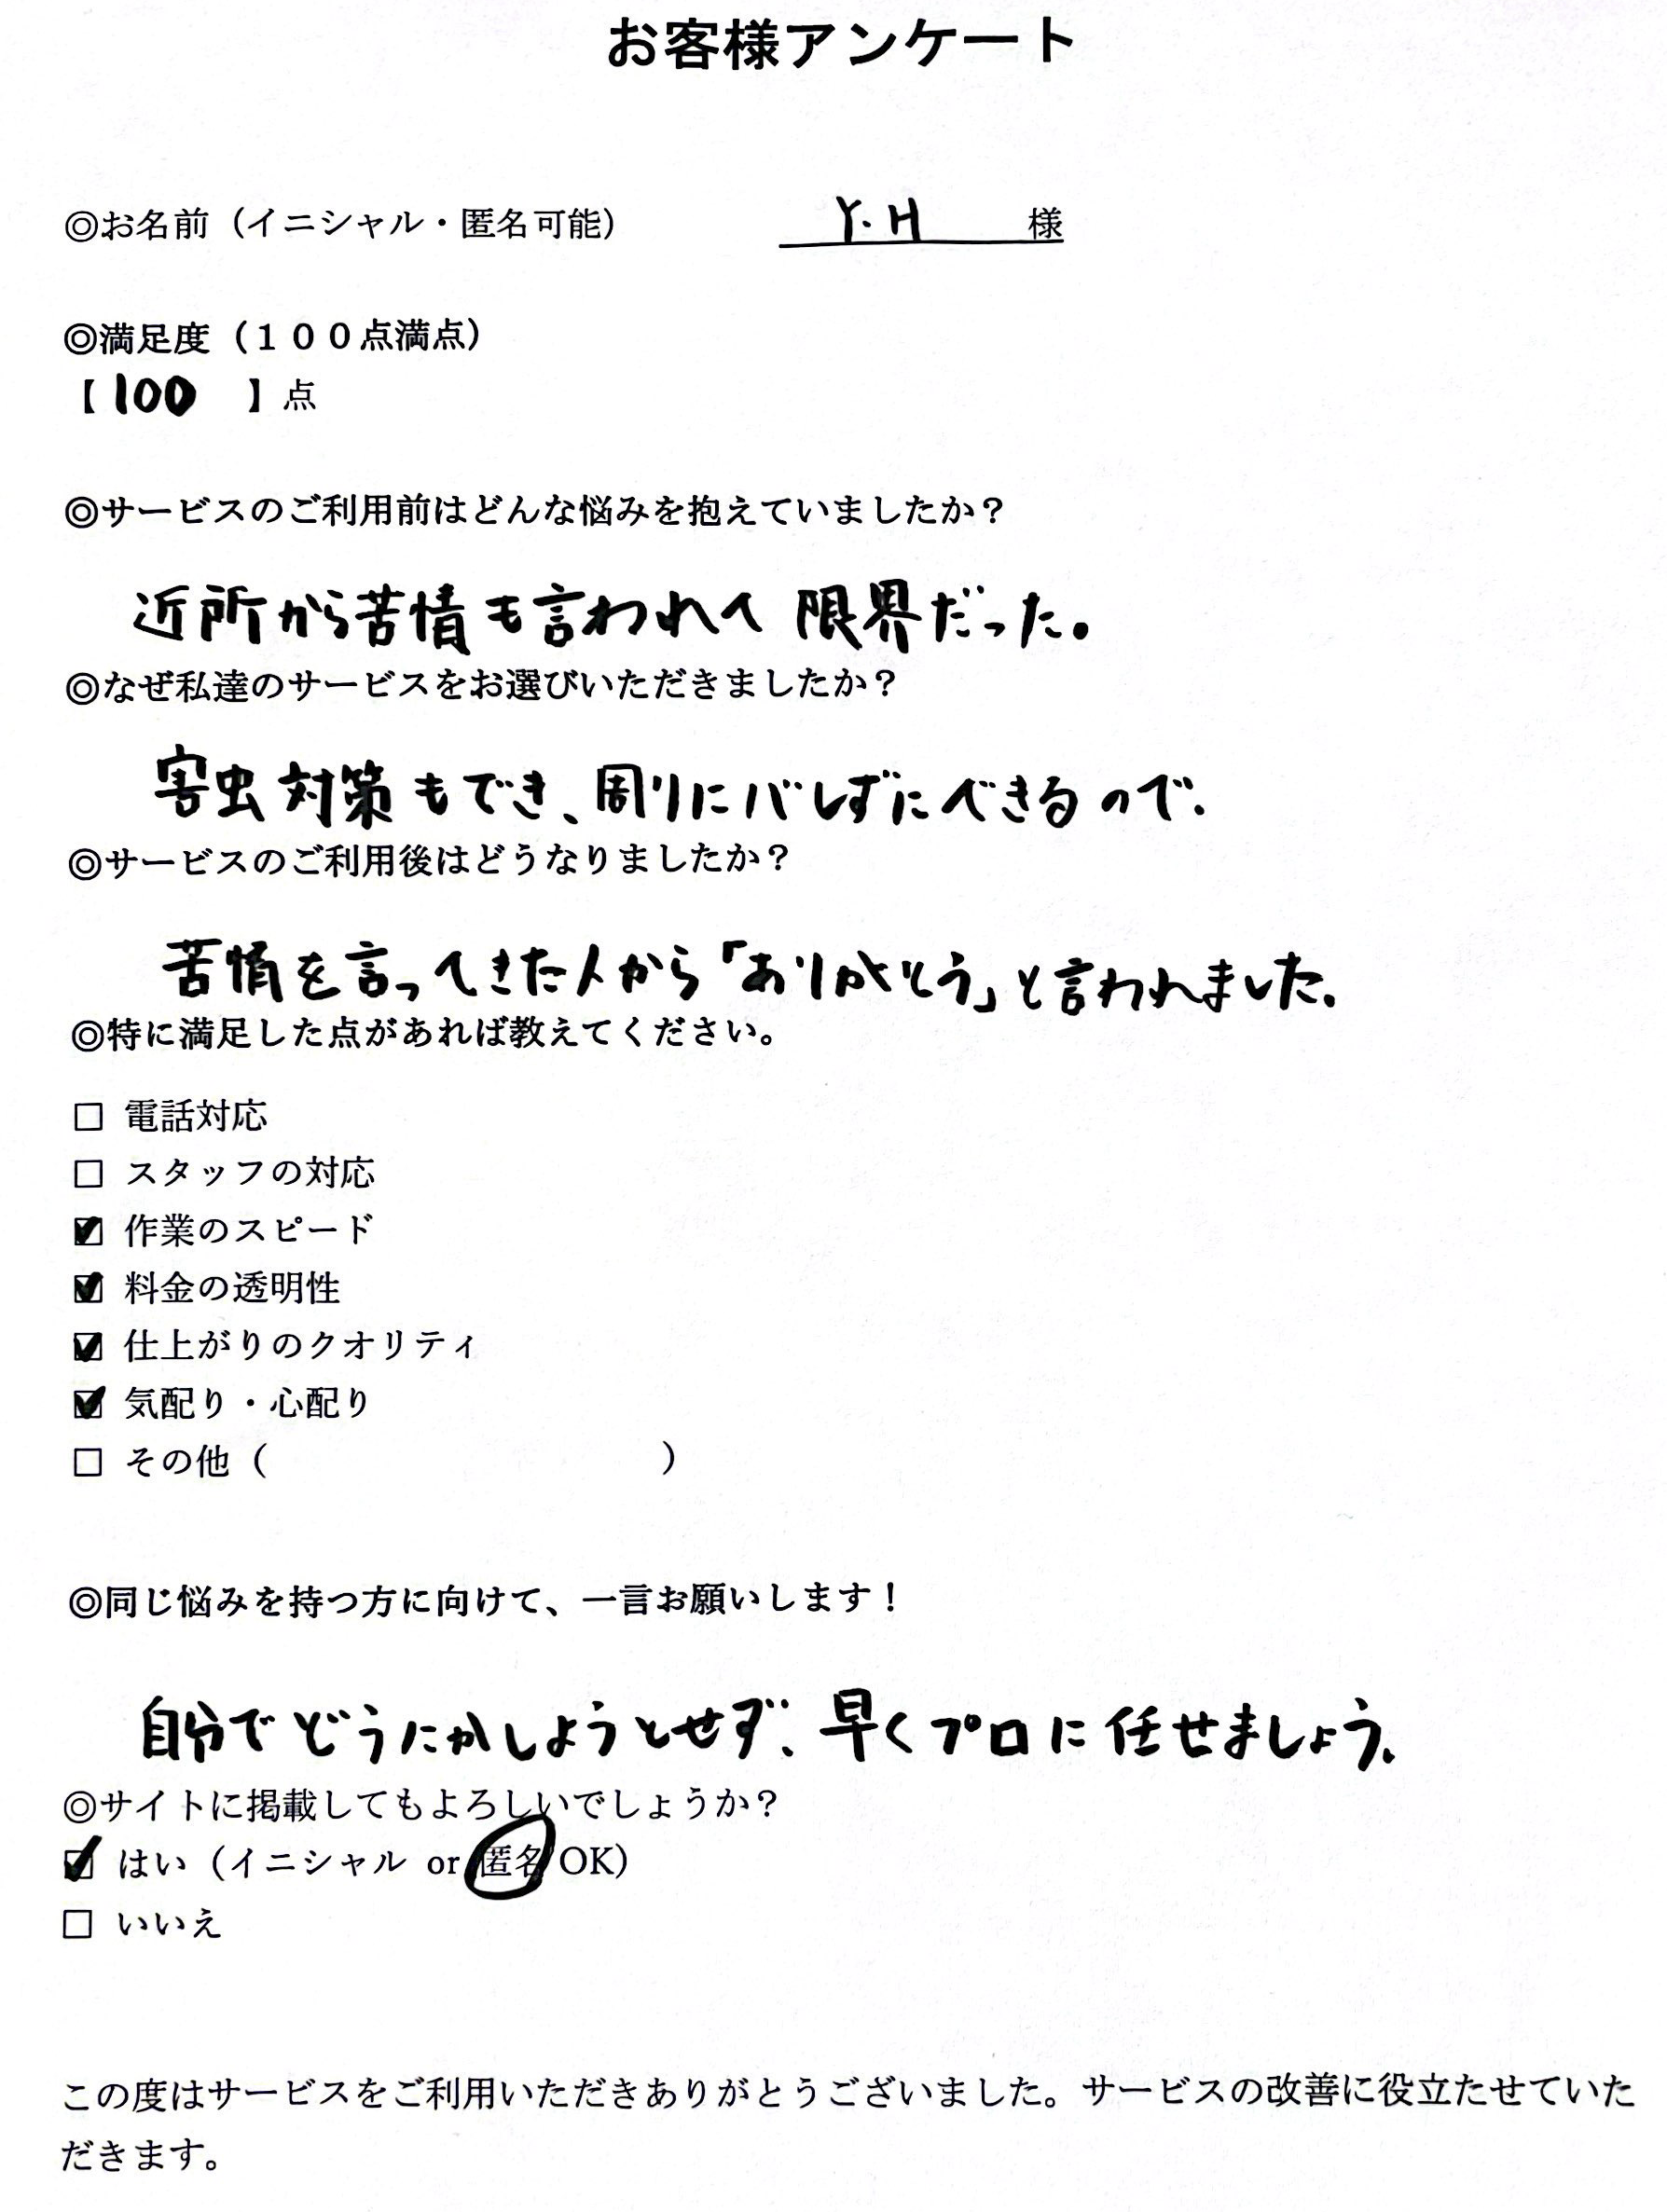 お客様アンケート
◎お名前（イニシャル・匿名可能） Y.H 様
◎満足度（１００点満点）
【100 】点
◎サービスのご利用前はどんな悩みを抱えていましたか？
近所から苦情も言われて 限界だった。
◎なぜ私達のサービスをお選びいただきましたか？
害虫対策もでき、周りにバレずにできるので。
◎サービスのご利用後はどうなりましたか？
苦情を言ってきた人から「ありがとう」と言われました。
◎特に満足した点があれば教えてください。
□ 電話対応
□ スタッフの対応
☑ 作業のスピード
☑ 料金の透明性
☑ 仕上がりのクオリティ
☑ 気配り・心配り
□ その他（ ）
◎同じ悩みを持つ方に向けて、一言お願いします！
自分でどうにかしようとせず、早くプロに任せましょう。
◎サイトに掲載してもよろしいでしょうか？
☑ はい（イニシャル or 匿名 OK）
□ いいえ
この度はサービスをご利用いただきありがとうございました。サービスの改善に役立たせていた
だきます。